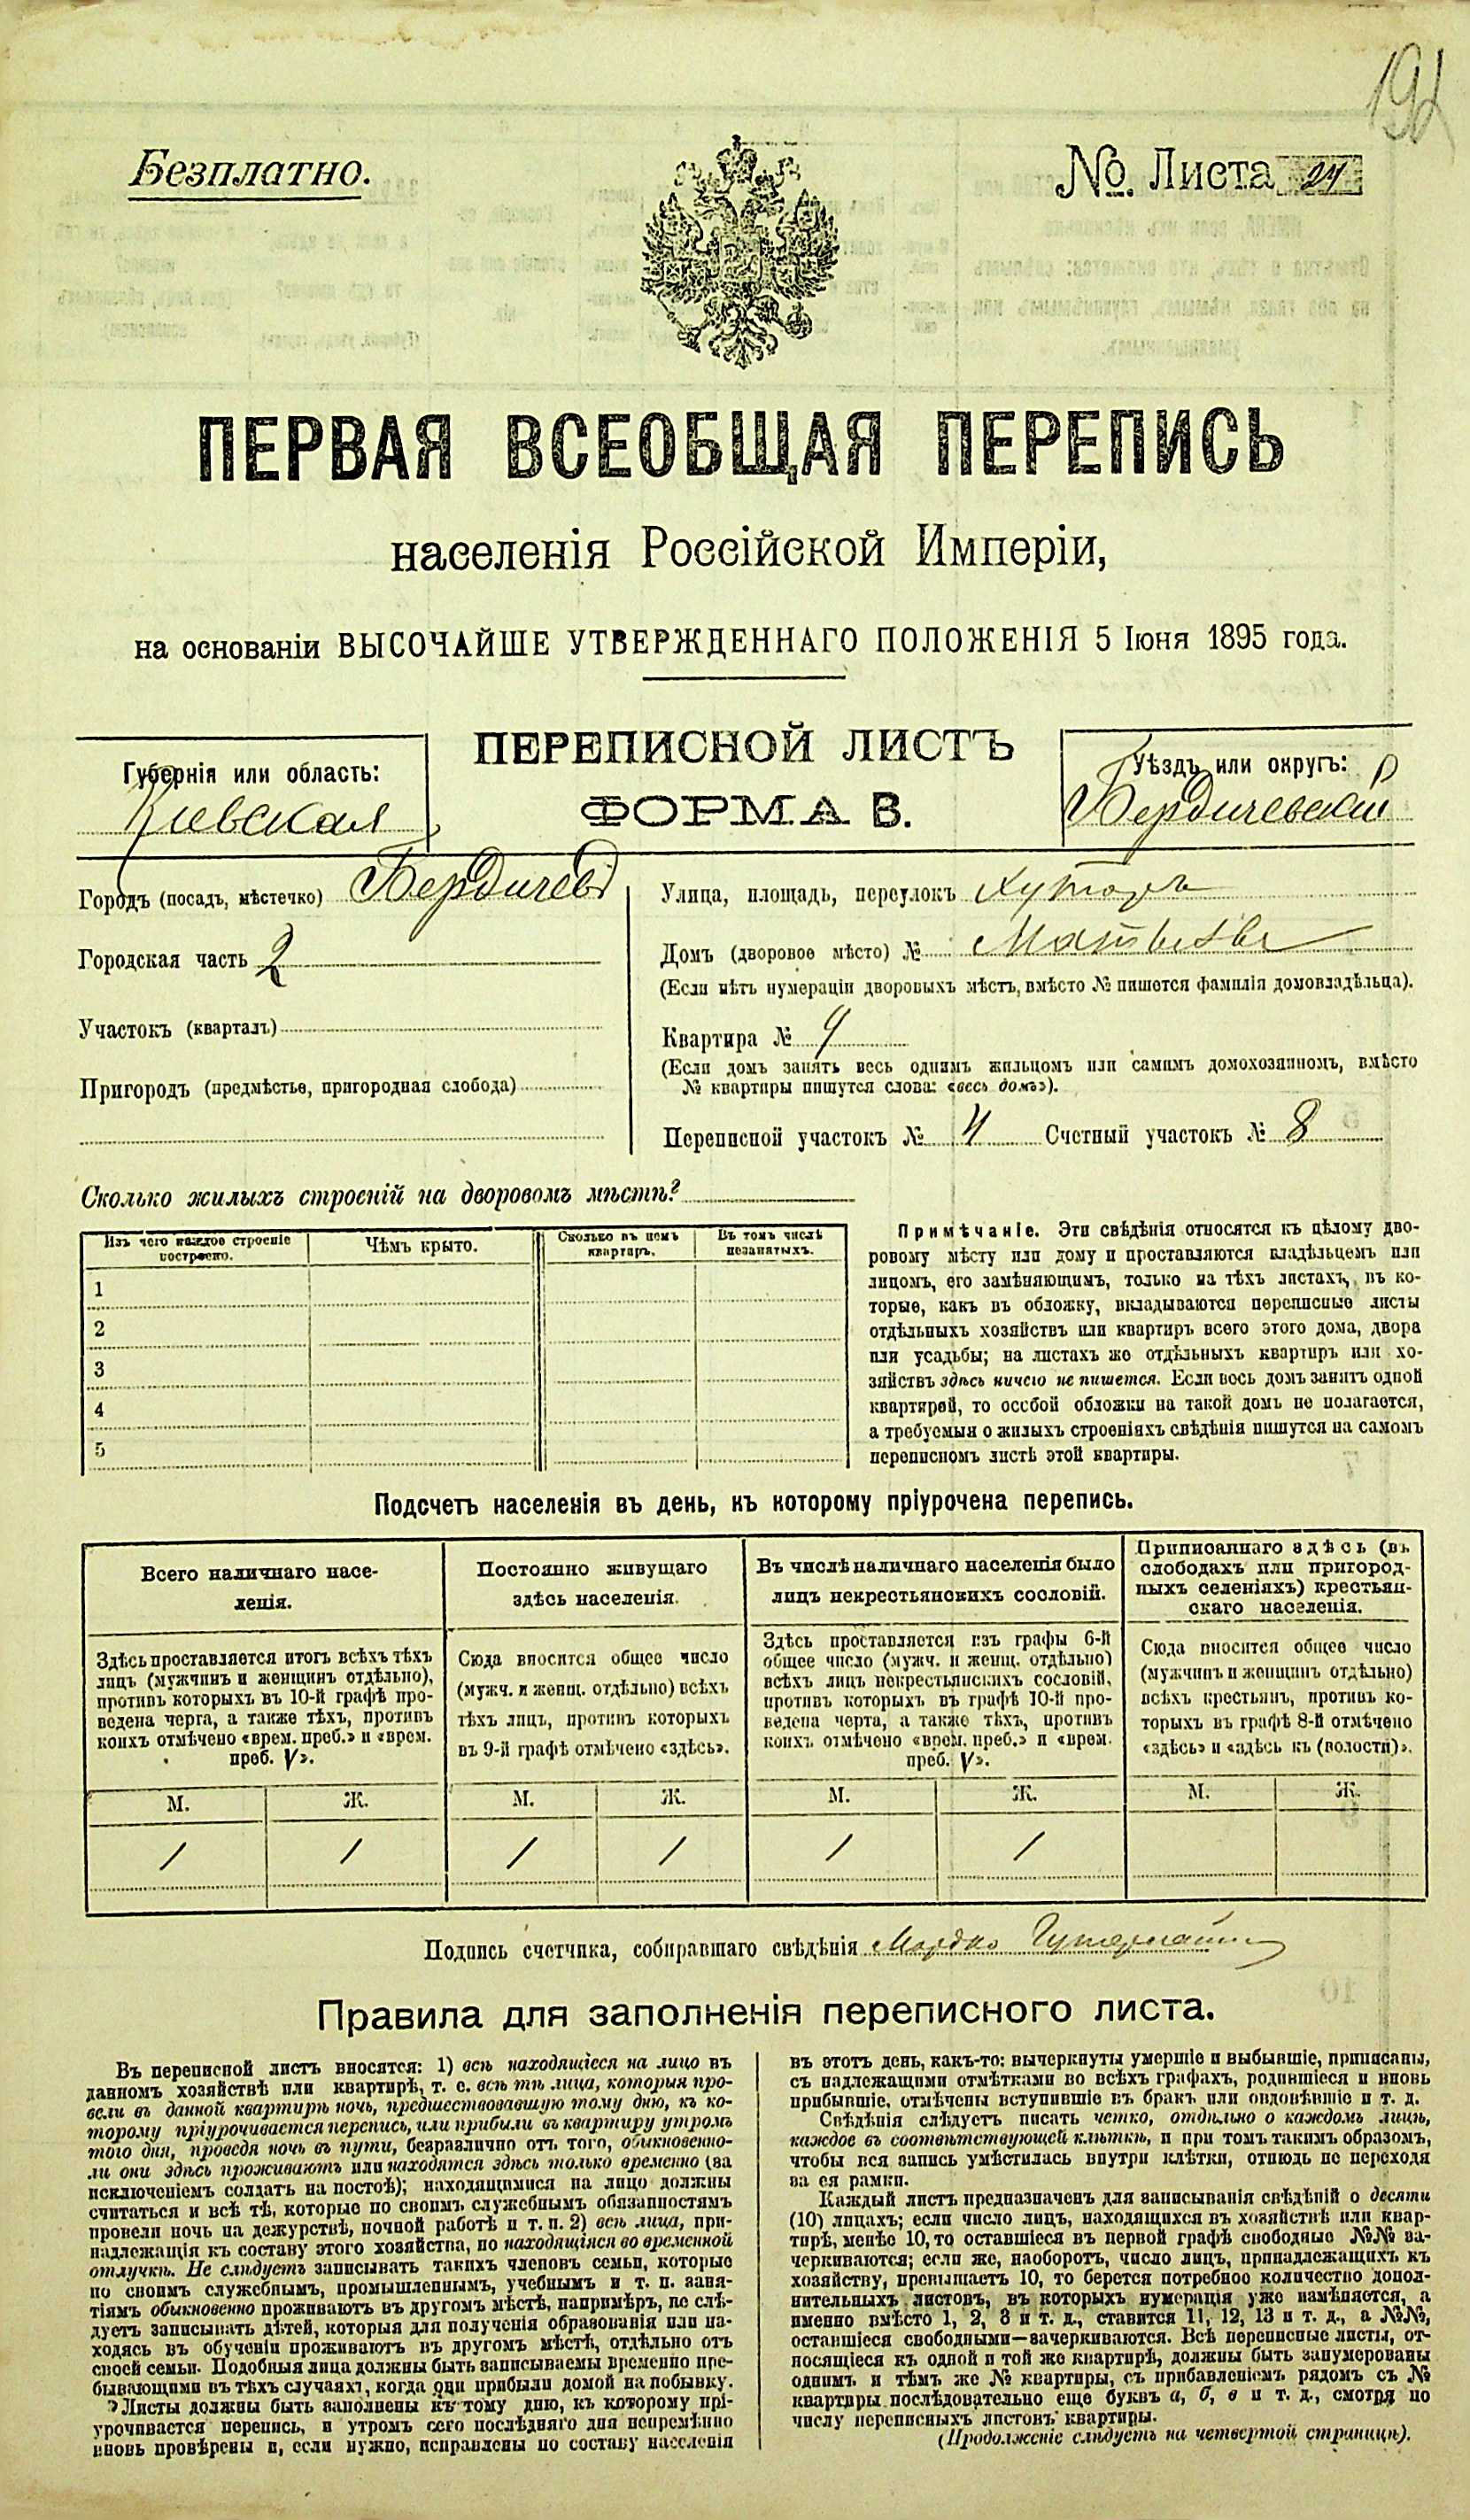 198
Безплатно.
№. Листа 24
ПЕРВАЯ ВСЕОБЩАЯ ПЕРЕПИСЬ
населенія Россійской Имперіи,
на основаніи ВЫСОЧАЙШЕ УТВЕРЖДЕННАГО ПОЛОЖЕНІЯ 5 Іюня 1895 года.
ПЕРЕПИСНОЙ ЛИСТЪ
ФОРМА В.
Губернія или область:
Киевская
Уѣздъ или округъ:
Бердичевский
Городъ (посадъ, мѣстечко) Бердичевъ
Городская часть 2
Участокъ (кварталъ)
Пригородъ (предмѣстье, пригородная слобода)
Улица, площадь, переулокъ Хуторъ
Домъ (дворовое мѣсто) №
(Если нѣтъ нумераціи дворовыхъ мѣстъ, вмѣсто № пишется фамилія домовладѣльца).
Квартира № 4
(Если домъ занятъ весь однимъ жильцомъ или самимъ домохозяиномъ, вмѣсто
№ квартиры пишутся слова: «весь домъ»).
Переписной участокъ № 4 Счетный участокъ № 8
Сколько жилыхъ строеній на дворовомъ мѣстѣ?
Изъ чего каждое строеніе построено.
Чѣмъ крыто.
Сколько въ немъ квартиръ.
Въ томъ числѣ незанятыхъ.
1
2
3
4
5
Примѣчаніе. Эти свѣдѣнія относятся къ цѣлому дво-
ровому мѣсту или дому и проставляются владѣльцемъ или
лицомъ, его замѣняющимъ, только на тѣхъ листахъ, въ ко-
торые, какъ въ обложку, вкладываются переписные листы
отдѣльныхъ хозяйствъ или квартиръ всего этого дома, двора
или усадьбы; на листахъ же отдѣльныхъ квартиръ или хо-
зяйствъ здѣсь ничего не пишется. Если весь домъ занятъ одной
квартирой, то особой обложки на такой домъ не полагается,
а требуемыя о жилыхъ строеніяхъ свѣдѣнія пишутся на самомъ
переписномъ листѣ этой квартиры.
Подсчетъ населенія въ день, къ которому пріурочена перепись.
Всего наличнаго насе-
ленія.
Здѣсь проставляется итогъ всѣхъ тѣхъ
лицъ (мужчинъ и женщинъ отдѣльно),
противъ которыхъ въ 10-й графѣ про-
ведена черта, а также тѣхъ, противъ
коихъ отмѣчено «врем. преб.» и «врем.
преб. V».
М. Ж.
/ /
Постоянно живущаго
здѣсь населенія.
Сюда вносится общее число
(мужч. и женщ. отдѣльно) всѣхъ
тѣхъ лицъ, противъ которыхъ
въ 9-й графѣ отмѣчено «здѣсь».
М. Ж.
/ /
Въ числѣ наличнаго населенія было
лицъ некрестьянскихъ сословій.
Здѣсь проставляется изъ графы 6-й
общее число (мужч. и женщ. отдѣльно)
всѣхъ лицъ некрестьянскихъ сословій,
противъ которыхъ въ графѣ 10-й про-
ведена черта, а также тѣхъ, противъ
коихъ отмѣчено «врем. преб.» и «врем.
преб. V».
М. Ж.
/ /
Приписаннаго здѣсь (въ
слободахъ или пригород-
ныхъ селеніяхъ) крестьян-
скаго населенія.
Сюда вносится общее число
(мужчинъ и женщинъ отдѣльно)
всѣхъ крестьянъ, противъ ко-
торыхъ въ графѣ 8-й отмѣчено
«здѣсь» и «здѣсь къ (волости)».
М. Ж.
Подпись счетчика, собиравшаго свѣдѣнія Мордко Гутерман
Правила для заполненія переписного листа.
Въ переписной листъ вносятся: 1) всѣ находящіеся на лицо въ
данномъ хозяйствѣ или квартирѣ, т. е. всѣ тѣ лица, которыя про-
вели въ данной квартирѣ ночь, предшествовавшую тому дню, къ ко-
торому пріурочивается перепись, или прибыли въ квартиру утромъ
того дня, проведя ночь въ пути, безразлично отъ того, обыкновенно-
ли они здѣсь проживаютъ или находятся здѣсь только временно (за
исключеніемъ солдатъ на постоѣ); находящимися на лицо должны
считаться и всѣ тѣ, которые по своимъ служебнымъ обязанностямъ
провели ночь на дежурствѣ, ночной работѣ и т. п. 2) всѣ лица, при-
надлежащія къ составу этого хозяйства, но находящіяся во временной
отлучкѣ. Не слѣдуетъ записывать такихъ членовъ семьи, которые
по своимъ служебнымъ, промышленнымъ, учебнымъ и т. п. заня-
тіямъ обыкновенно проживаютъ въ другомъ мѣстѣ, напримѣръ, не слѣ-
дуетъ записывать дѣтей, которыя для полученія образованія или на-
ходясь въ обученіи проживаютъ въ другомъ мѣстѣ, отдѣльно отъ
своей семьи. Подобныя лица должны быть записываемы временно пре-
бывающими въ тѣхъ случаяхъ, когда они прибыли домой на побывку.
Листы должны быть заполнены къ тому дню, къ которому прі-
урочивается перепись, и утромъ сего послѣдняго дня непремѣнно
вновь провѣрены и, если нужно, исправлены по составу населенія
въ этотъ день, какъ-то: вычеркнуты умершіе и выбывшіе, приписаны,
съ надлежащими отмѣтками во всѣхъ графахъ, родившіеся и вновь
прибывшіе, отмѣчены вступившіе въ бракъ или овдовѣвшіе и т. д.
Свѣдѣнія слѣдуетъ писать четко, отдѣльно о каждомъ лицѣ,
каждое въ соотвѣтствующей клѣткѣ, и при томъ такимъ образомъ,
чтобы вся запись умѣстилась внутри клѣтки, отнюдь не переходя
за ея рамки.
Каждый листъ предназначенъ для записыванія свѣдѣній о десяти
(10) лицахъ; если число лицъ, находящихся въ хозяйствѣ или квар-
тирѣ, менѣе 10, то оставшіеся въ первой графѣ свободные №№ за-
черкиваются; если же, наоборотъ, число лицъ, принадлежащихъ къ
хозяйству, превышаетъ 10, то берется потребное количество допол-
нительныхъ листовъ, въ которыхъ нумерація уже измѣняется, а
именно вмѣсто 1, 2, 3 и т. д., ставится 11, 12, 13 и т. д., а №№,
оставшіеся свободными—зачеркиваются. Всѣ переписные листы, от-
носящіеся къ одной и той же квартирѣ, должны быть занумерованы
однимъ и тѣмъ же № квартиры, съ прибавленіемъ рядомъ съ №
квартиры послѣдовательно еще буквъ а, б, в и т. д., смотря по
числу переписныхъ листовъ квартиры.
(Продолженіе слѣдуетъ на четвертой страницѣ).